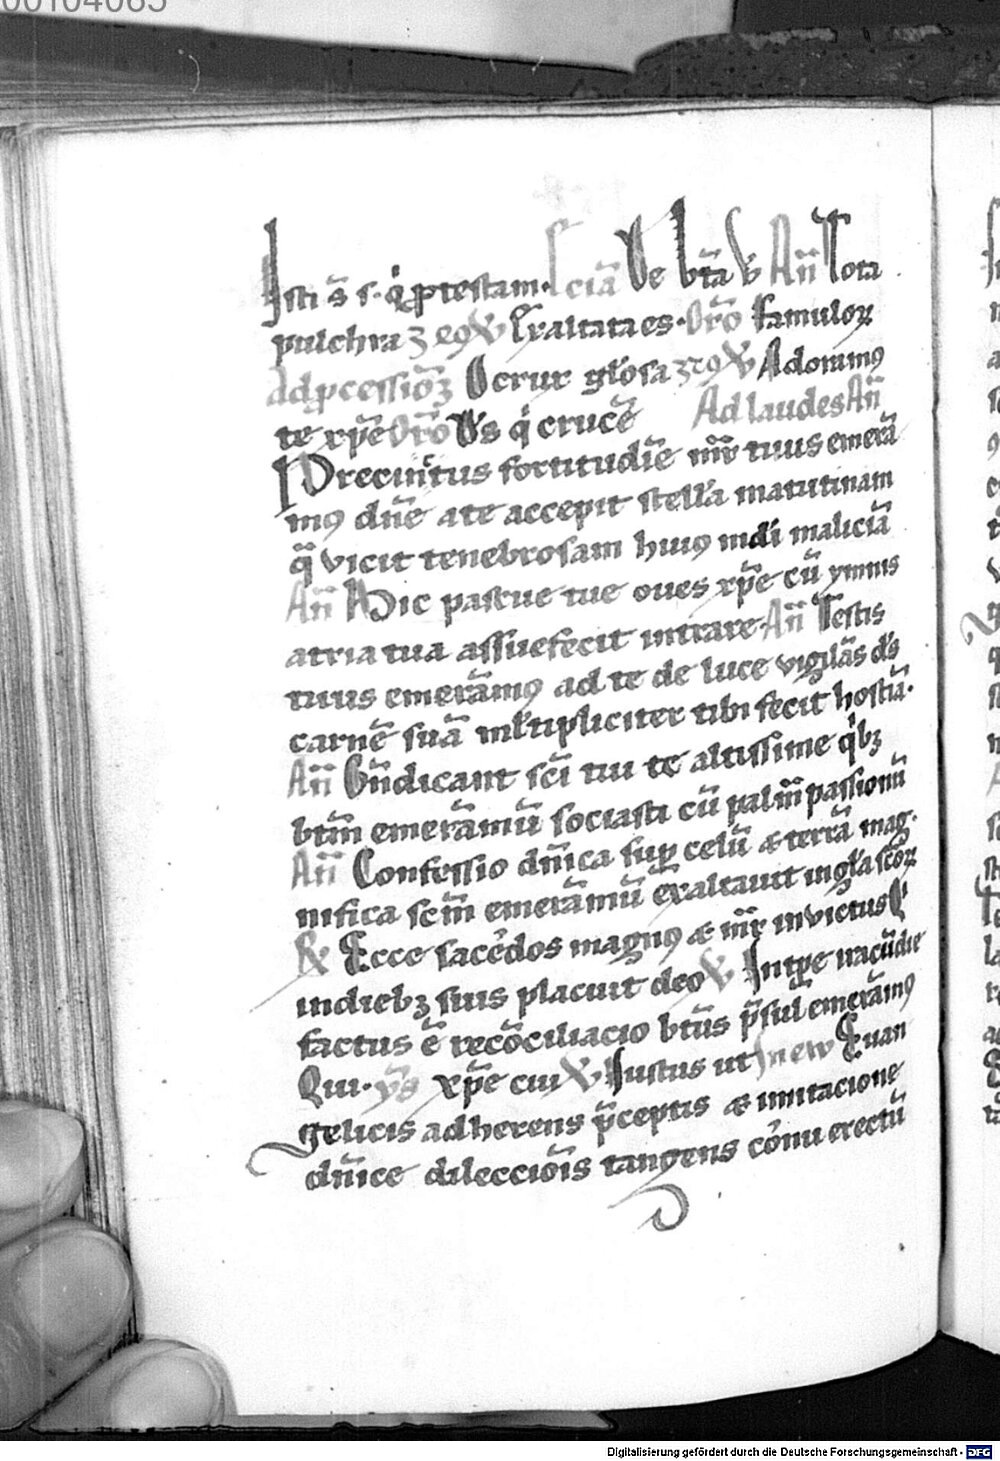 00104065
Isti s̄ s. q̇ ꝓ testam. scīa De bt̄a v̇ Añ Tota
pulchra ʒ eꝯ V̇ Exaltata es. Or̄o Famuloꝝ
Ad ꝓcessiōʒ O crux gl̄osa ʒ V̇ Adoramꝯ
te xp̄e Or̄o D̄s q̇ crucē Ad laudes Añ
Precinctus fortitudīe mr̄ tuus emerā
mꝯ dn̄e a te accepit stellā matutinam
q̄ vicit tenebrosam huiꝯ mdi maliciā
Añ Hic pascue tue oues xp̄e cū ymnis
atria tua assuefecit intrare. Añ Testis
tuus emerāmꝯ ad te de luce vigilās d̄s
carnē suā ml̄tipliciter tibi fecit hostiā.
Añ Bn̄dicant sc̄i tui te altissime q̇bꝫ
btm̄ emerāmū sociasti cū palm̄ passionū
Añ Confessio dn̄ica suꝑ celū & terrā mag
nifica scm̄ emerāmū exaltauit in gl̄a sc̄oꝝ
℟ Ecce sacēdos magnꝯ & mr̄ inuictus Q̇
in diebꝫ suis placuit deo V̇ In tꝑe iracūdie
factus ē recōciliacio bt̄us p̄sul emerāmꝯ
Qui. yp̄s xp̄e cui V̇ Iustus ut In ew Euan
gelicis adherens p̄ceptis & imitacione
dn̄ice dilecciōis tangens cōnu erectū
Digitalisierung gefördert durch die Deutsche Forschungsgemeinschaft - DFG